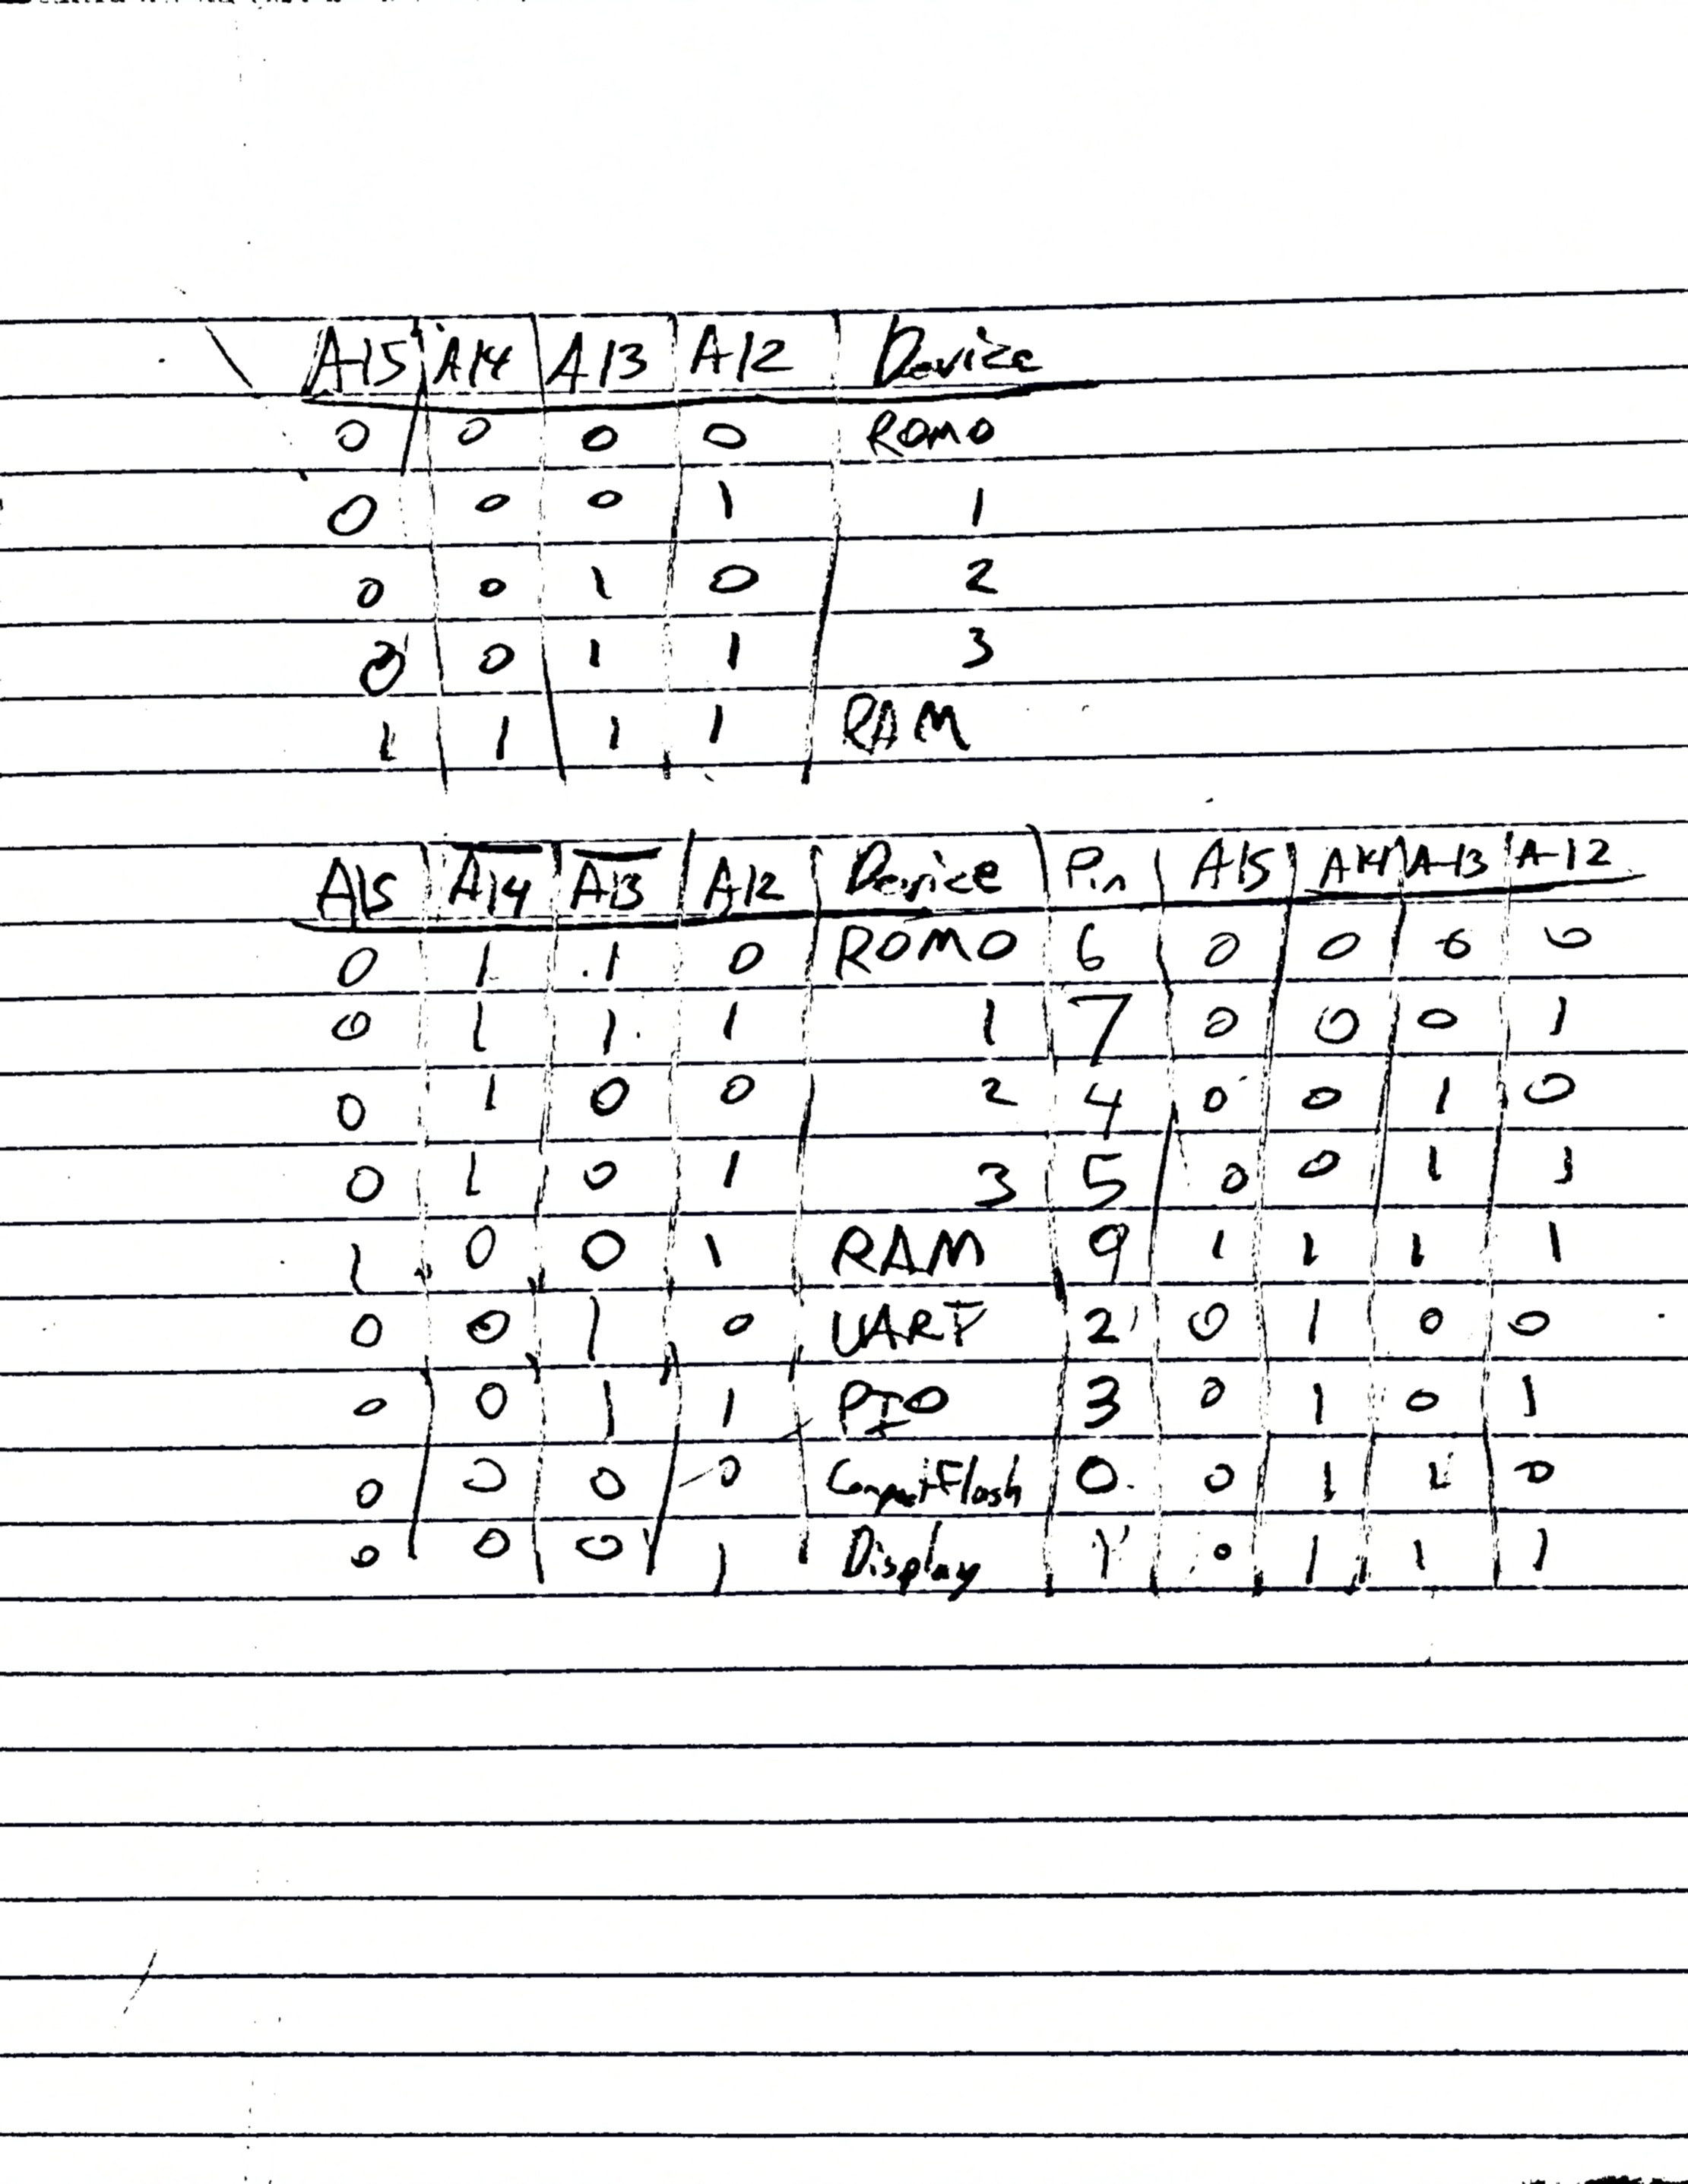 A15 A14 A13 A12 Device
0 0 0 0 ROM0
0 0 0 1 1
0 0 1 0 2
0 0 1 1 3
1 1 1 1 RAM
A15 A̅1̅4̅ A̅1̅3̅ A12 Device Pin A15 A14 A13 A12
0 1 1 0 ROM0 6 0 0 0 0
0 1 1 1 1 7 0 0 0 1
0 1 0 0 2 4 0 0 1 0
0 1 0 1 3 5 0 0 1 1
1 0 0 1 RAM 9 1 1 1 1
0 0 1 0 UART 2 0 1 0 0
0 0 1 1 PIO 3 0 1 0 1
0 0 0 0 CompactFlash 0 0 1 1 0
0 0 0 1 Display 1 0 1 1 1